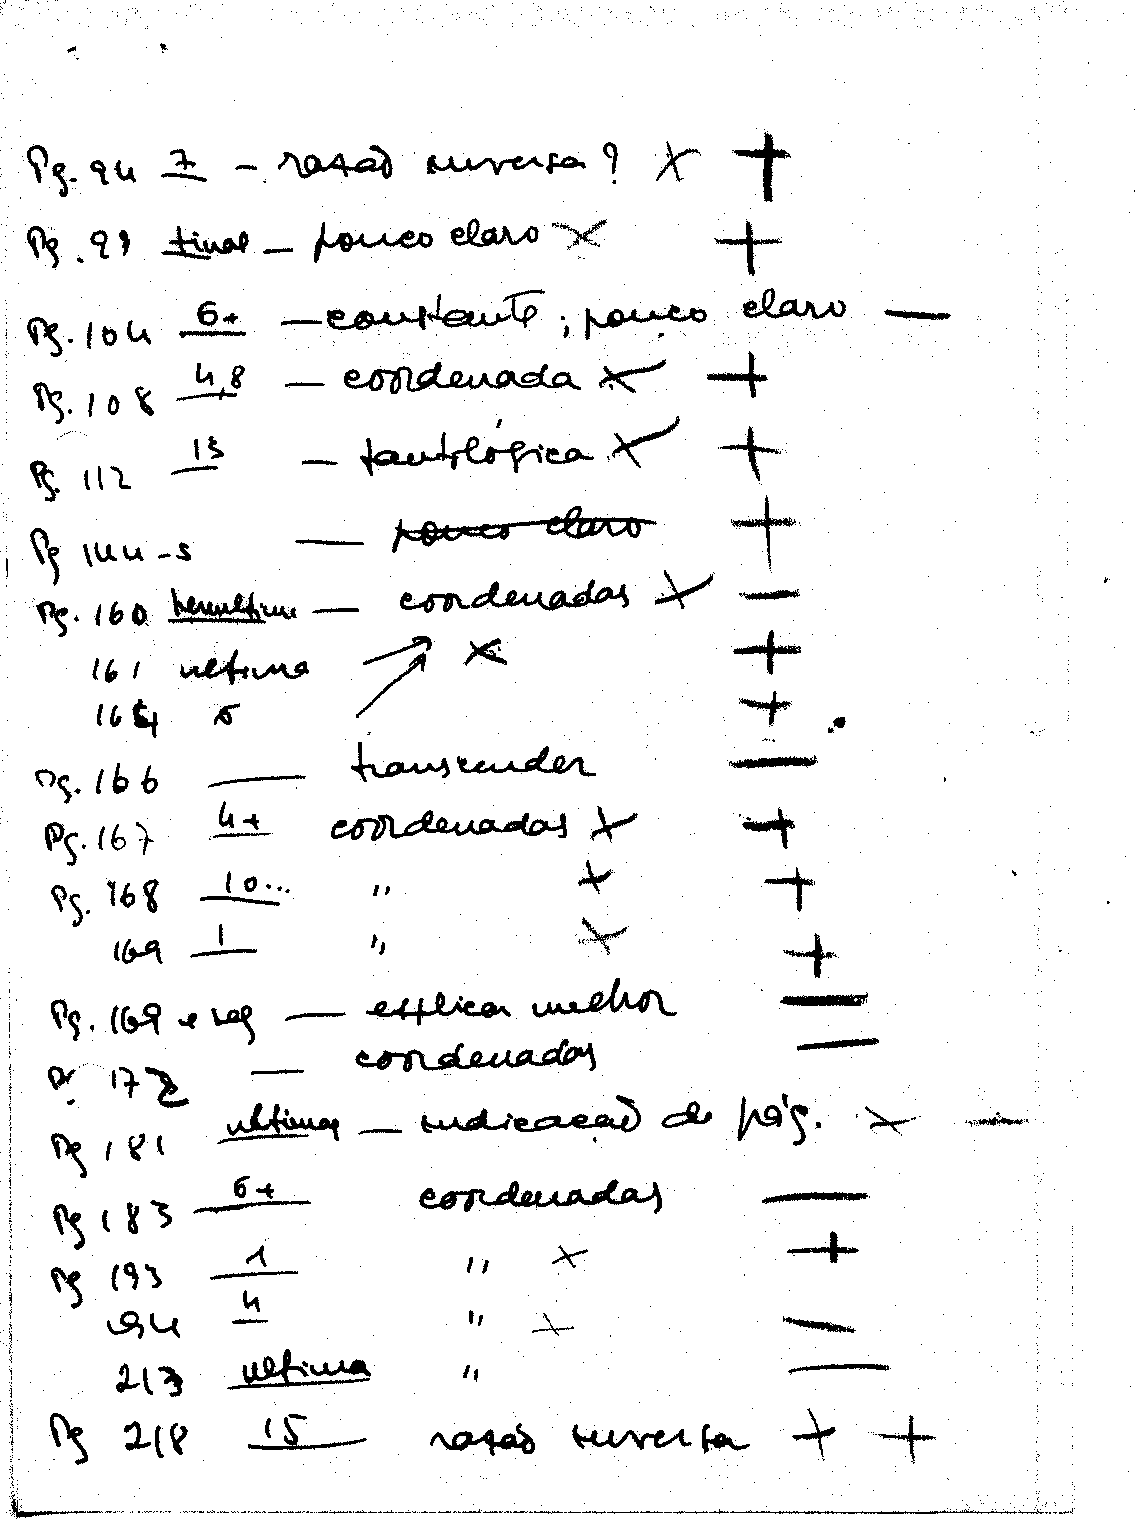 Pg. 94 7 - razão inversa? x +
Pg. 99 final - pouco claro x +
Pg. 104 6+ - constante; pouco claro -
Pg. 108 4,8 - coordenada x +
Pg. 112 13 - tautológica x +
Pg 144-5 - pouco claro +
Pg. 160 penultima - coordenadas x -
161 ultima x +
164 5 +
Pg. 166 - transcender -
Pg. 167 4+ coordenadas x +
Pg. 168 10... " x +
169 1 " x +
Pg. 169 e seg - explicar melhor -
P. 172 - coordenadas -
Pg 181 ultimas - indicação de pág. x -
Pg 183 6+ coordenadas -
Pg 193 1 " x +
194 4 " x -
213 ultima " -
Pg 218 15 razão inversa x +